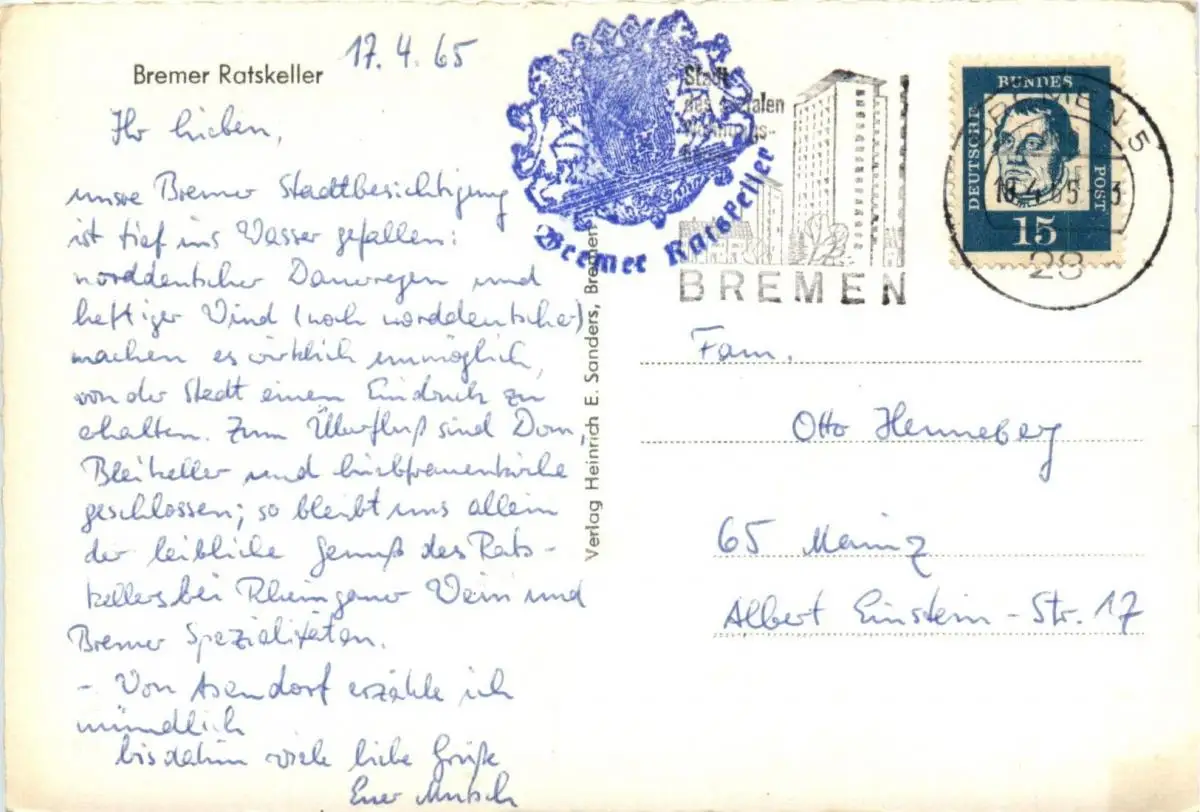 17. 4. 65
Bremer Ratskeller
Ihr Lieben,
unsre Bremer Stadtbesichtigung
ist tief ins Wasser gefallen:
norddeutscher Dauerregen und
heftiger Wind (noch norddeutscher)
machen es wirklich unmöglich,
von der Stadt einen Eindruck zu
erhalten. Zum Überfluß sind Dom
Bleikeller und Liebfrauenkirche
geschlossen; so bleibt uns allein
der leibliche Genuß des Rats-
kellers bei Rheingauer Wein und
Bremer Spezialitäten.
- Von Asendorf erzähle ich
mündlich
bis dahin viele liebe Grüße
Euer
Verlag Heinrich E. Sanders, Bremen
Bremer Ratskeller
Stadt
des sozialen
BREMEN
DEUTSCHE BUNDES POST
15
BREMEN 5
28
Fam.
Otto Henneberg
65 Mainz
Albert Einstein-Str. 17